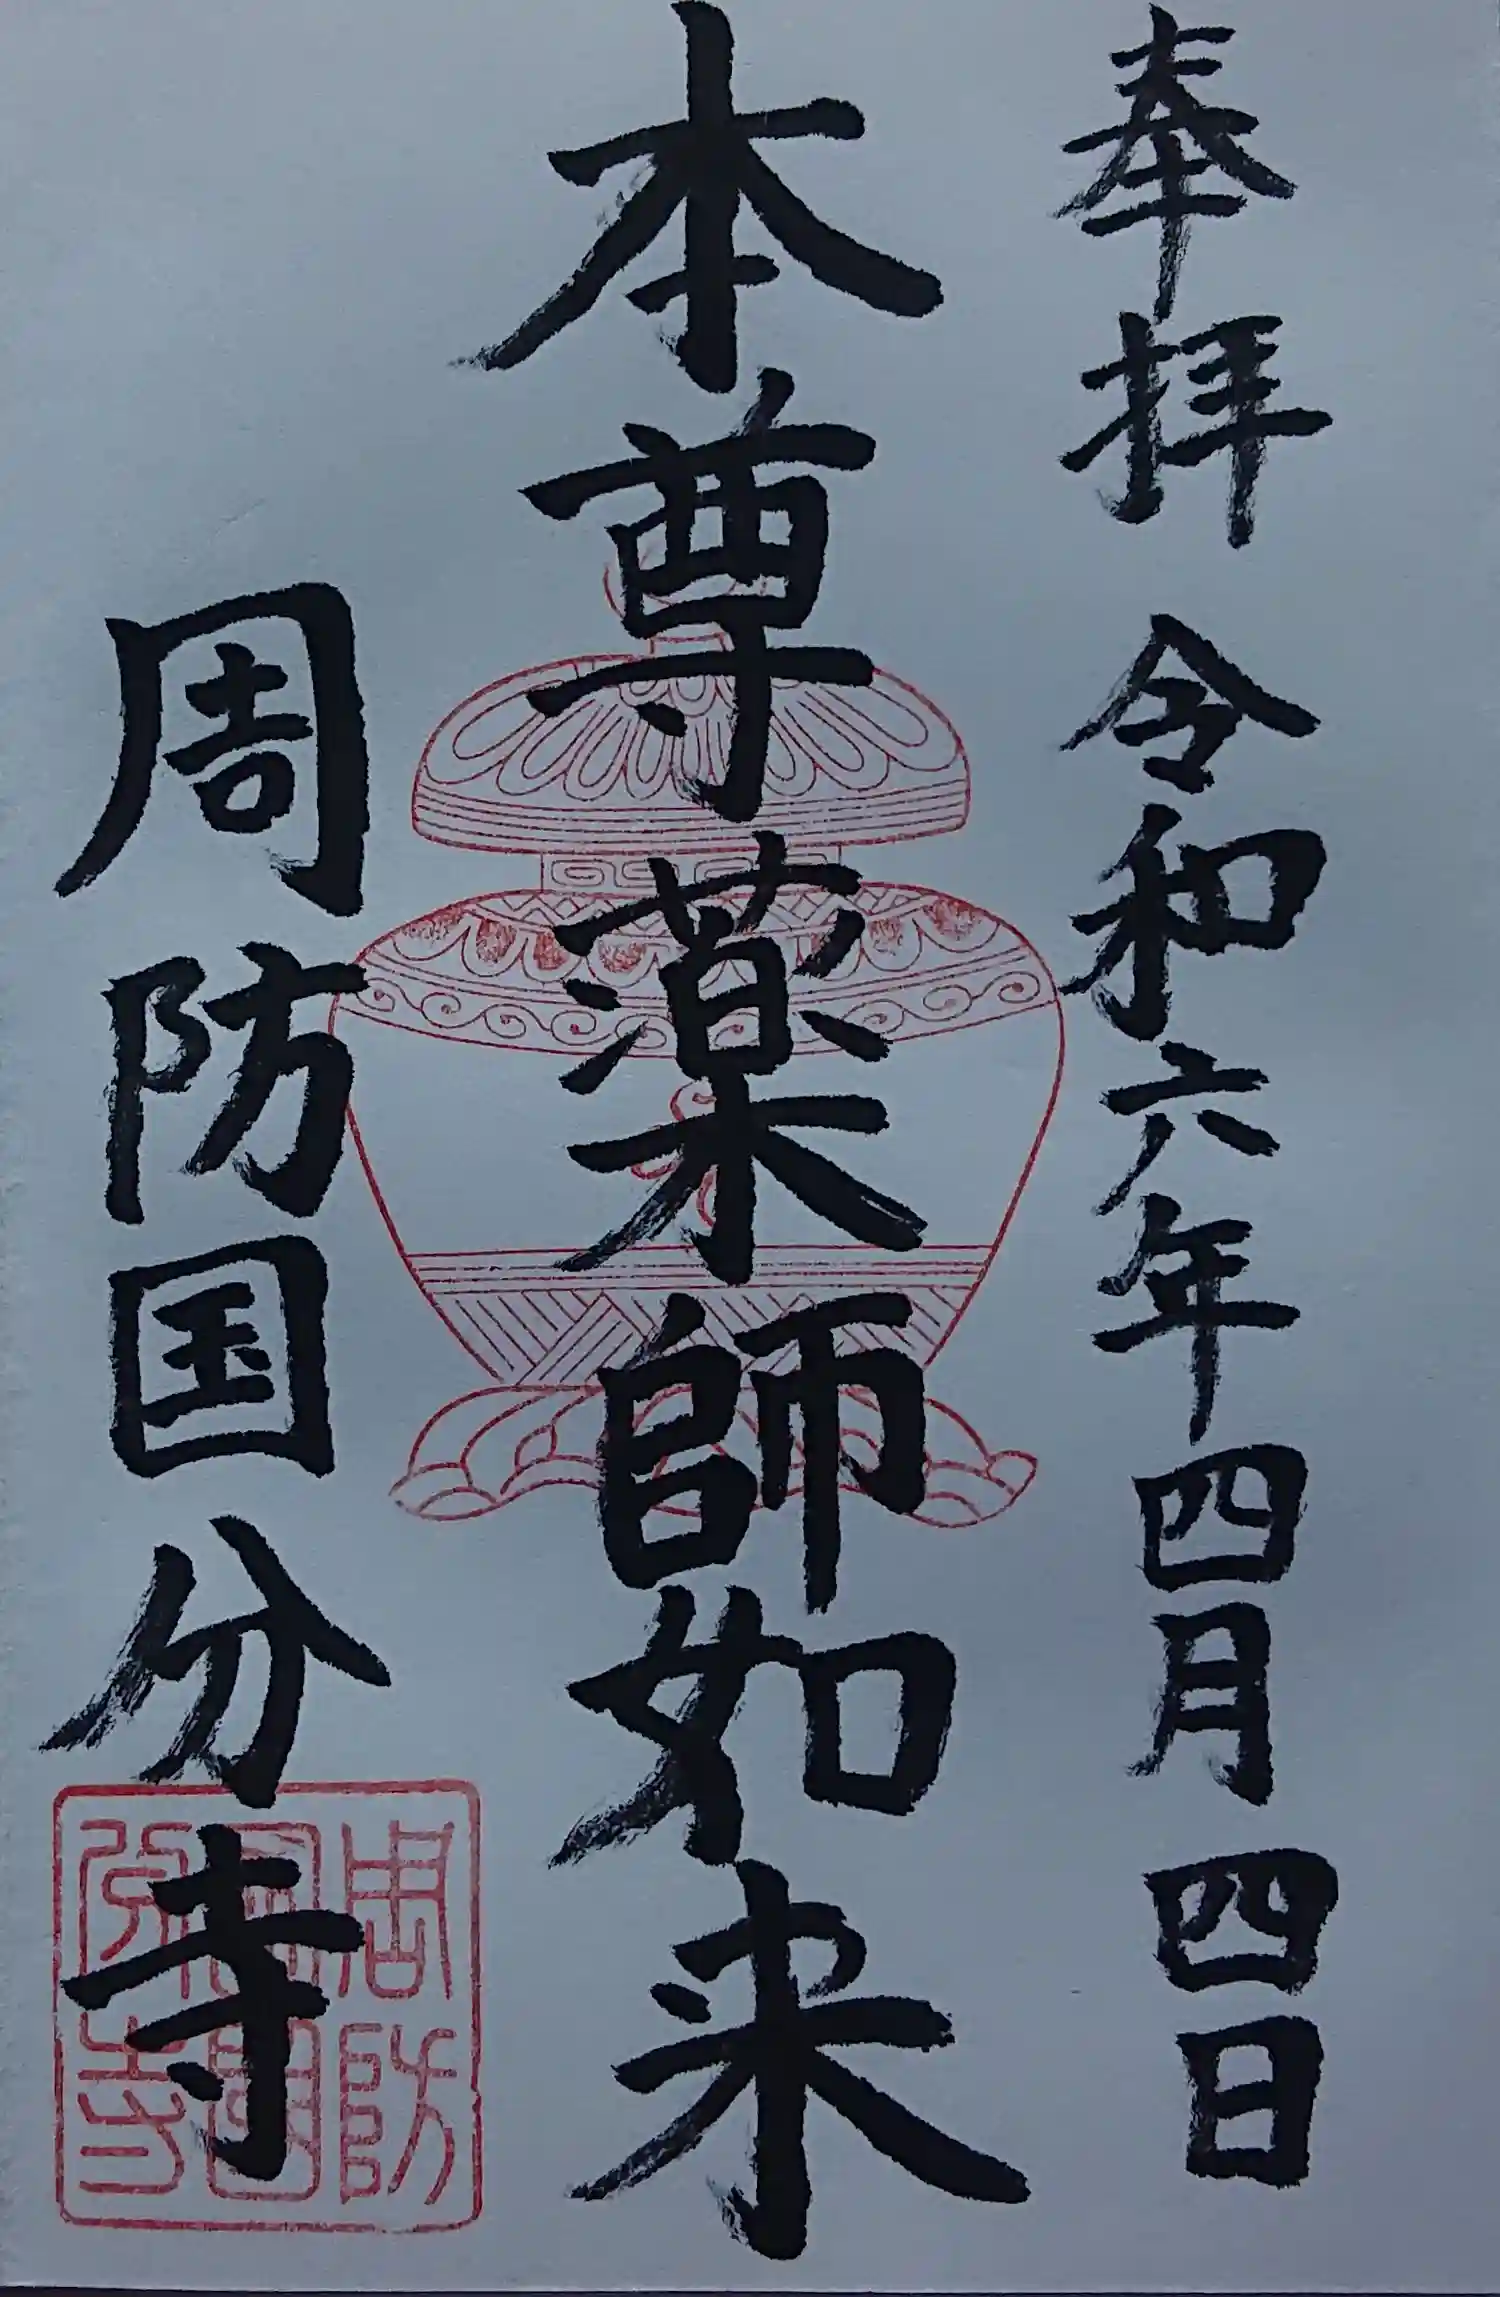 奉拝 令和六年四月四日
本尊薬師如来
周防国分寺
周防
國
分寺